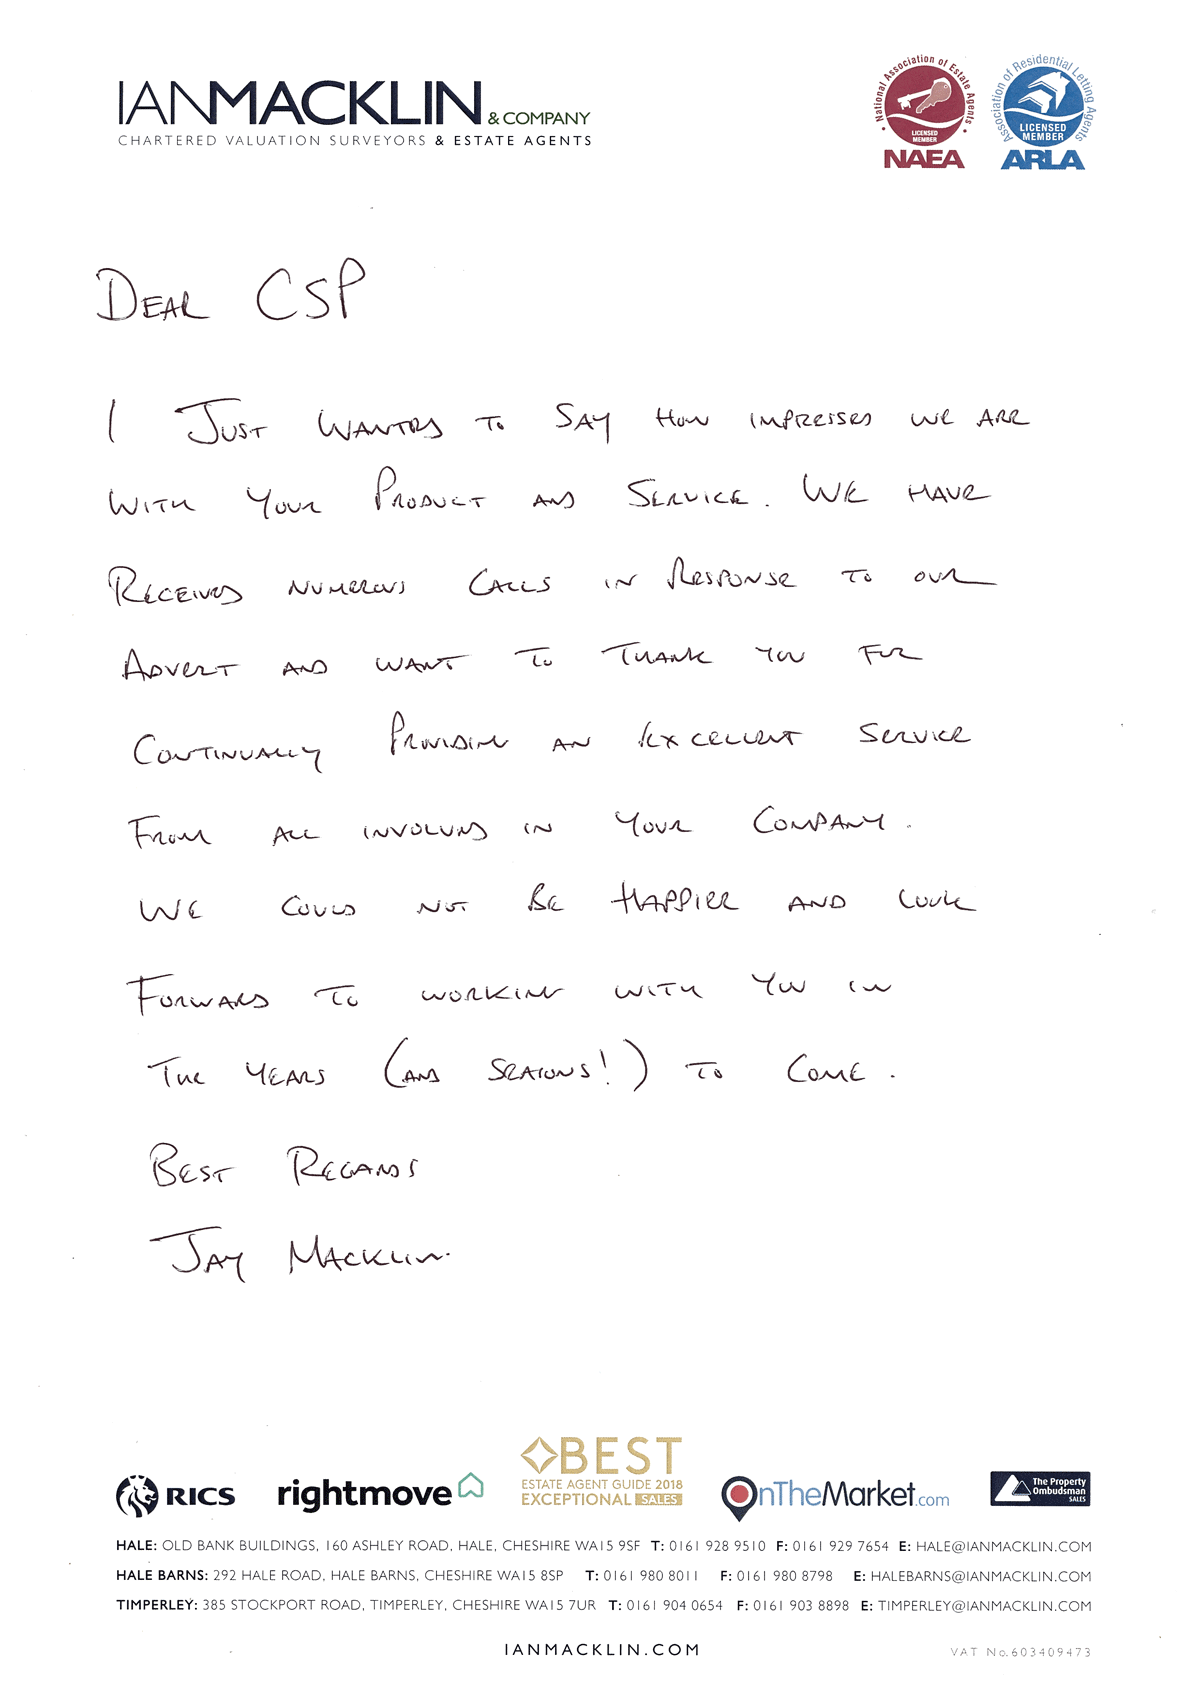 IANMACKLIN & COMPANY
CHARTERED VALUATION SURVEYORS & ESTATE AGENTS
National Association of Estate Agents
LICENSED MEMBER
NAEA
Association of Residential Letting Agents
LICENSED MEMBER
ARLA
DEAR CSP
I JUST WANTED TO SAY HOW IMPRESSED WE ARE
WITH YOUR PRODUCT AND SERVICE. WE HAVE
RECEIVED NUMEROUS CALLS IN RESPONSE TO OUR
ADVERT AND WANT TO THANK YOU FOR
CONTINUALLY PROVIDING AN EXCELLENT SERVICE
FROM ALL INVOLVED IN YOUR COMPANY.
WE COULD NOT BE HAPPIER AND LOOK
FORWARD TO WORKING WITH YOU IN
THE YEARS (AND SEASONS!) TO COME.
BEST REGARDS
JAY MACKLIN.
RICS
rightmove
BEST
ESTATE AGENT GUIDE 2018
EXCEPTIONAL SALES
OnTheMarket.com
The Property
Ombudsman
SALES
HALE: OLD BANK BUILDINGS, 160 ASHLEY ROAD, HALE, CHESHIRE WA15 9SF T: 0161 928 9510 F: 0161 929 7654 E: HALE@IANMACKLIN.COM
HALE BARNS: 292 HALE ROAD, HALE BARNS, CHESHIRE WA15 8SP T: 0161 980 8011 F: 0161 980 8798 E: HALEBARNS@IANMACKLIN.COM
TIMPERLEY: 385 STOCKPORT ROAD, TIMPERLEY, CHESHIRE WA15 7UR T: 0161 904 0654 F: 0161 903 8898 E: TIMPERLEY@IANMACKLIN.COM
IANMACKLIN.COM
VAT No. 603409473